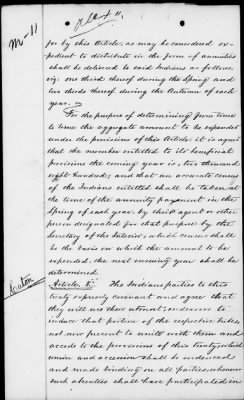 M-11
for by this Article, as may be considered ex-
pedient to distribute in the form of annuities
shall be delivered to said Indians as follows
viz: one third thereof during the Spring and
two thirds thereof during the Autumn of each
year.
For the purpose of determining from time
to time the aggregate amount to be expended
under the provisions of this Article it is agreed
that the number entitled to its beneficial
provisions the coming year is, two thousand
eight hundred; and that an accurate census
of the Indians entitled shall be taken at
the time of the annuity payment in the
Spring of each year, by their agent or other
person designated for that purpose by the
Secretary of the Interior, which census shall
be the basis on which the amount to be
expended the next ensuing year shall be
determined.
Article 5. The Indians parties to this
treaty expressly covenant and agree that
they will use their utmost endeavor to
induce that portion of the respective tribes
not now present to unite with them and
accede to the provisions of this treaty, which
union and accession shall be evidenced
and made binding on all parties whenever
such absentees shall have participated in